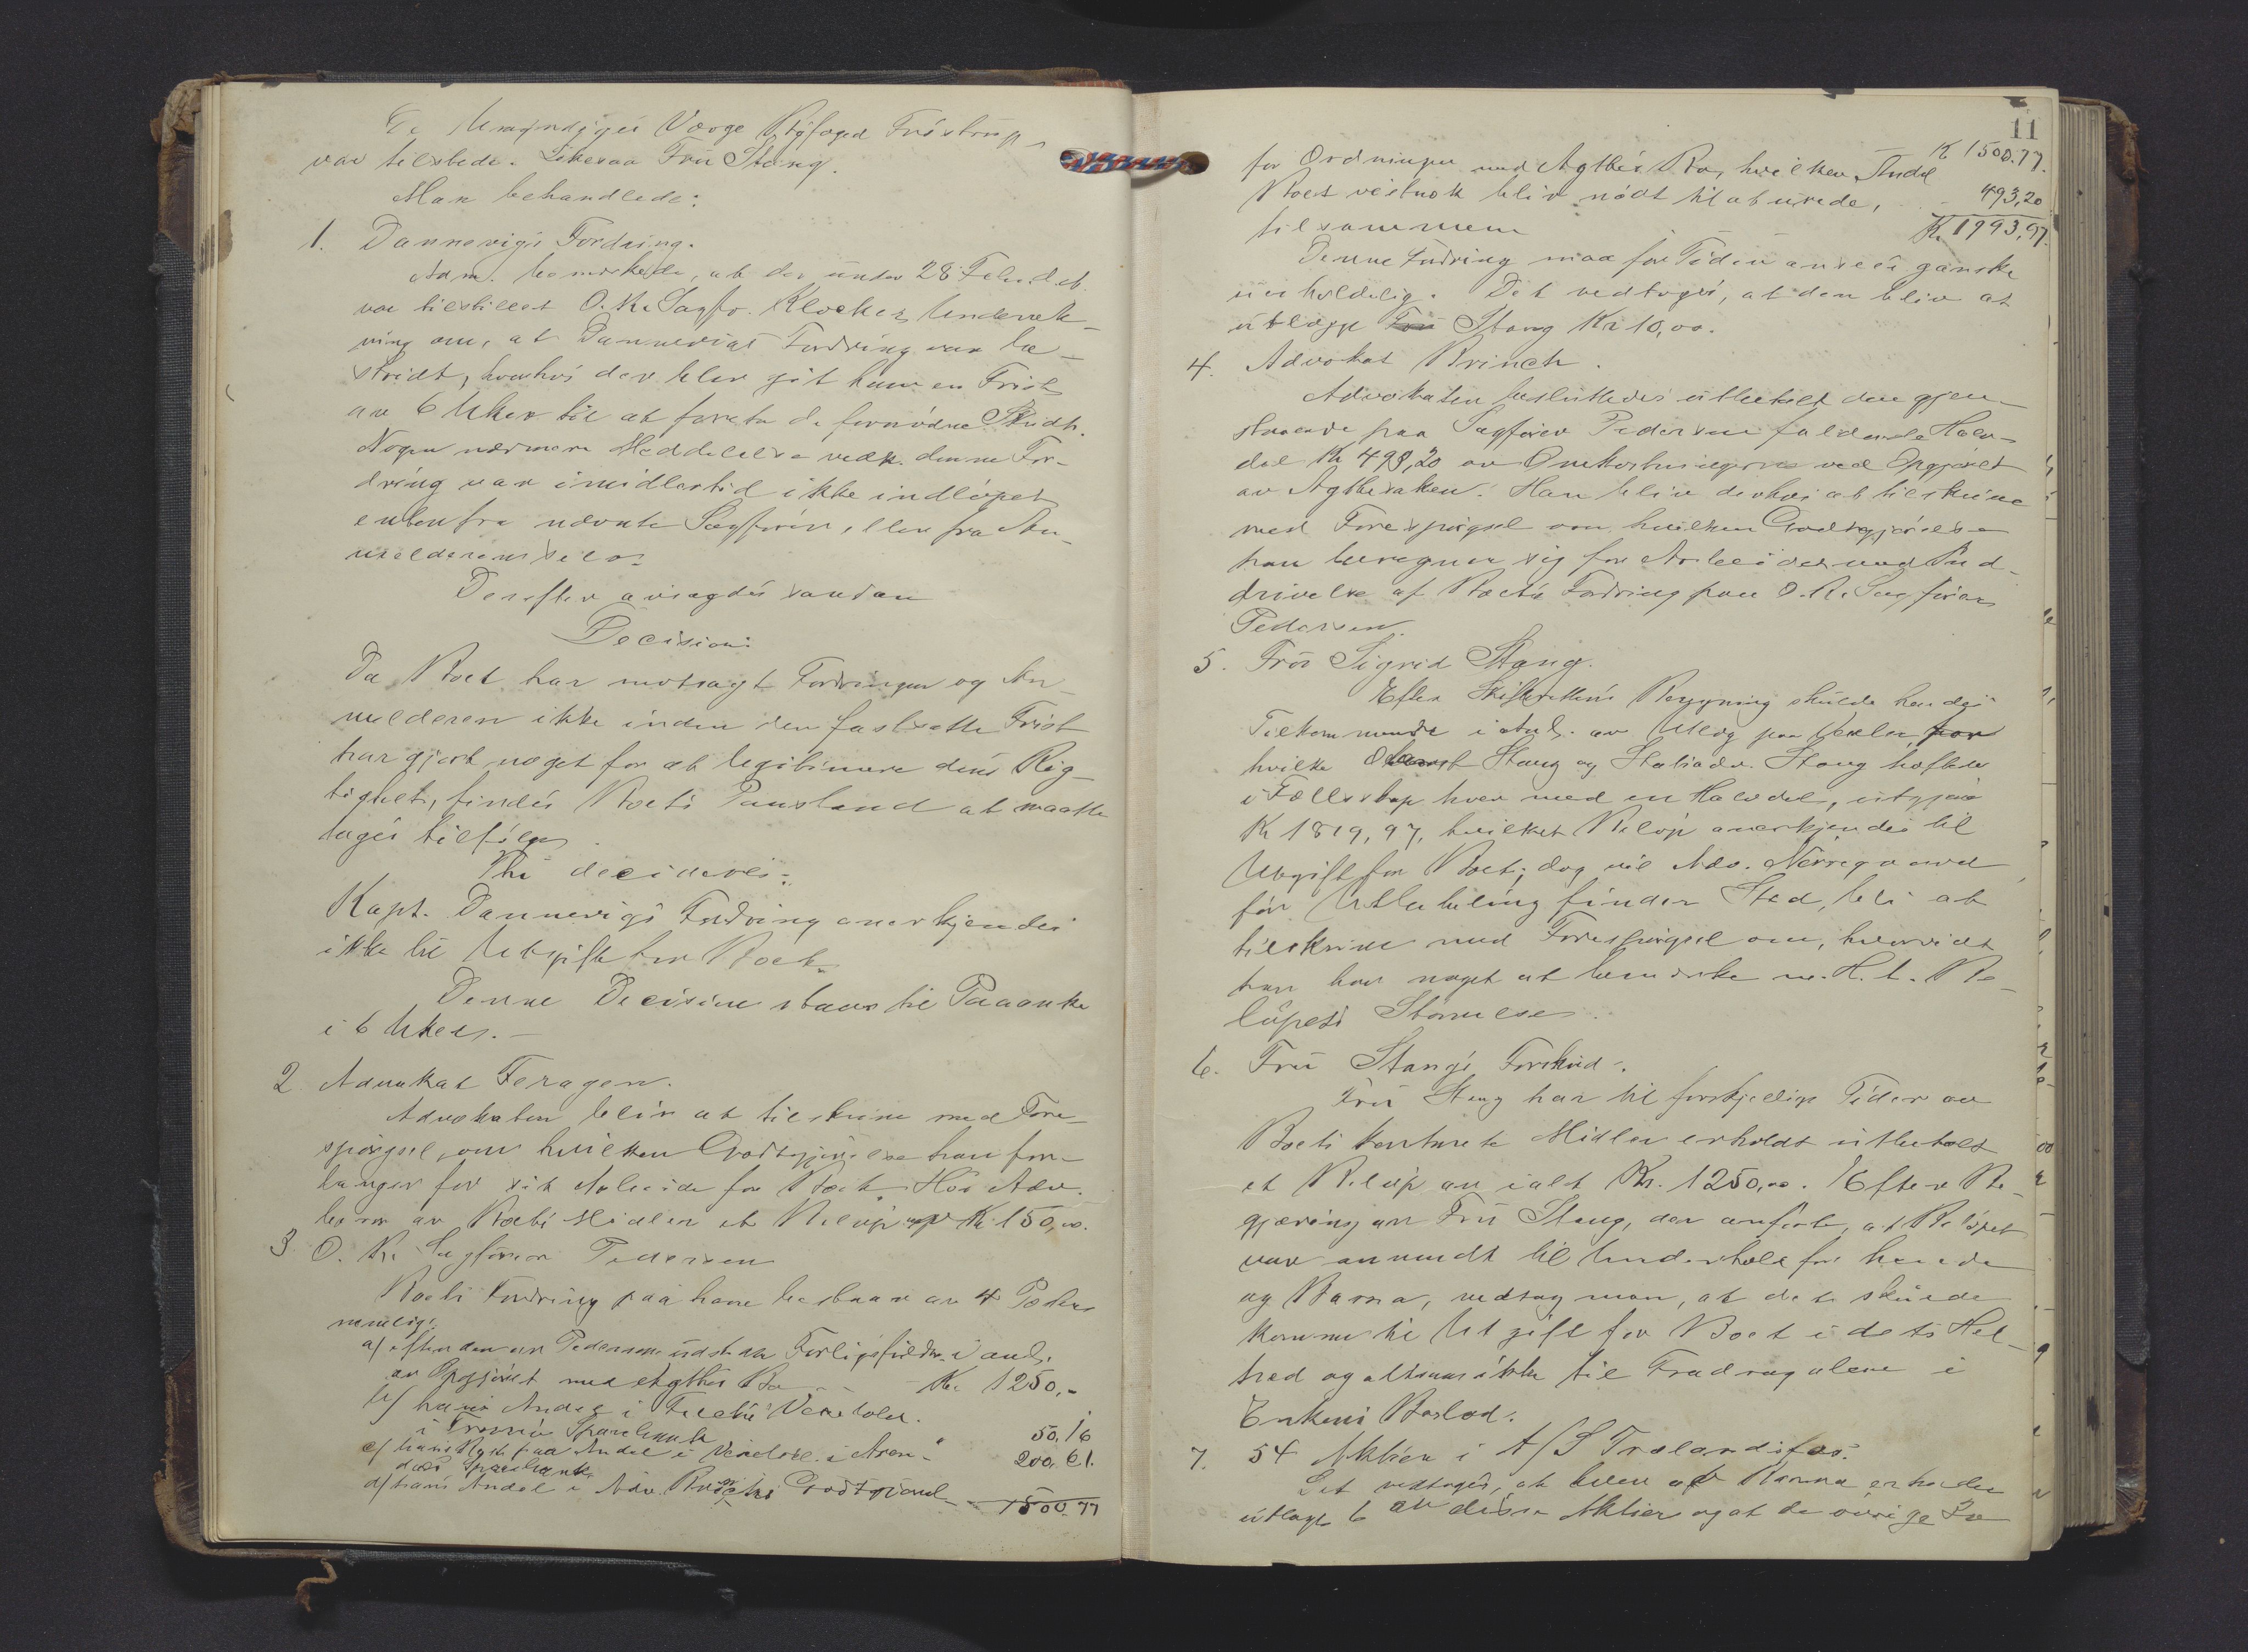 De Umyndiges Værge Byfoged Fröstrup
var tilstede. Likesaa Frü Stang.
Man behandlede:
1. Dannevigs Fordring.
Adm. bemerkede, at der ünder 28 Febr. d.A.
var tilstillet O.R. Sagfr. Klocker Underret-
ning om, at Dannevigs Fordring var be-
stridt, hvorhos der blev git ham en Frist
av 6 Uker til at foreta de fornødne Skridt.
Nogen nærmere Meddelelse vedk. denne For-
dring var imidlertid ikke indløpet
enten fra nævnte Sagfører, eller fra An-
melderen selv.
Derefter avsagdes saadan
Decision:
Da Boet har motsagt Fordringen og An-
melderen ikke inden den fastsatte Frist
har gjort noget for at legitimere dens Rig-
tighet, findes Boets Paastand at maatte
tages tilfølge
Thi decideres:
Kapt. Dannevigs Fordring anerkjendes
ikke til Utgift for Boet.
Denne Decision staar til Paaanke
i 6 Uker. -
2 Advokat Feragen.
Advokaten blir at tilskrive med Fore-
spørgsel, om hvilken Godtgjørelse han for-
langer for sit Arbeide for Boet. Hos Adv.
beror av Boets Midler et Beløp Kr. 150,00.
3 O. R. Sagfører Pedersen
Boets Fordring paa ham bestaar av 4 Poster
nemlig:
a/ efter den av Pedersen üdstedte Forligs i anl.
av Opgjøret med Agthes Bo - Kr. 1250,-
b/ hans Andel i Vexelold.
i Tromø Sparebank " 50.16
c/ hans Andel i Vexelobl. i Aren-
dals Sparebank 200.61.
d/ hans Andel i Adv. Godtgjørel- 1500.77
11
Kr 1500.77.
for Ordningen med Agthes Bo, hvilken Andel
Boet vistnok blir nødt til at ütrede, 493,20
tilsammen Kr 1993,97.
Denne Fordring maa for Tiden ansees ganske
üerholdelig. Det vedtoges, at den blir at
ütlægge Frü Stang Kr 10,00.
4. Advokat Brinch.
Advokaten besluttedes ütbetalt den gjen-
staaende paa Sagfører Pedersen faldende Halv-
del Kr 493,20 av Omkostningerne ved Opgjøret
av Agthesaken. Han blir derhos at tilskrive
med Forespørgsel om hvilken Godtgjørelse
han beregner sig for Arbeidet med Ind-
drivelse af Boets Fordring paa O.R. Sagfører
Pedersen.
5. Frü Sigrid Stang.
Efter Skifterettens Beregning skülde hendes
Tilkommende i Anl. av Utlæg paa Vexler for
hvilke Oberst Stang og Statsadv. Stang hæftede
i Fællesskap hver med en Halvdel, ütgjøre
Kr 1819,97, hvilket Beløp anerkjendes til
Utgift for Boet; dog vil Adv. Nørregaard,
før Utbetaling finder Sted, bli at
tilskrive med Forespørgsel om, hvorvidt
han har noget at bemerke m. H. t. Be-
løpets Størrelse.
6. Frü Stangs Forskud.
Frü Stang har til forskjellige Tider av
Boets kontante Midler erholdt ütbetalt
et Beløp av ialt Kr. 1250,00. Efter Be-
gjæring av Frü Stang, der anførte, at Beløpet
var anvendt til Underhold for hende
og Barna, vedtog man, at det skülde
komme til Utgift for Boet i dets Hel-
hed og altsaa ikke til Fradrag alene i
Enkens Boslod.
7. 54 Aktier i A/S Trælandsfos.
Det vedtoges, at hver av Barna erholder
ütlagt 6 av disse Aktier og at de øvrige